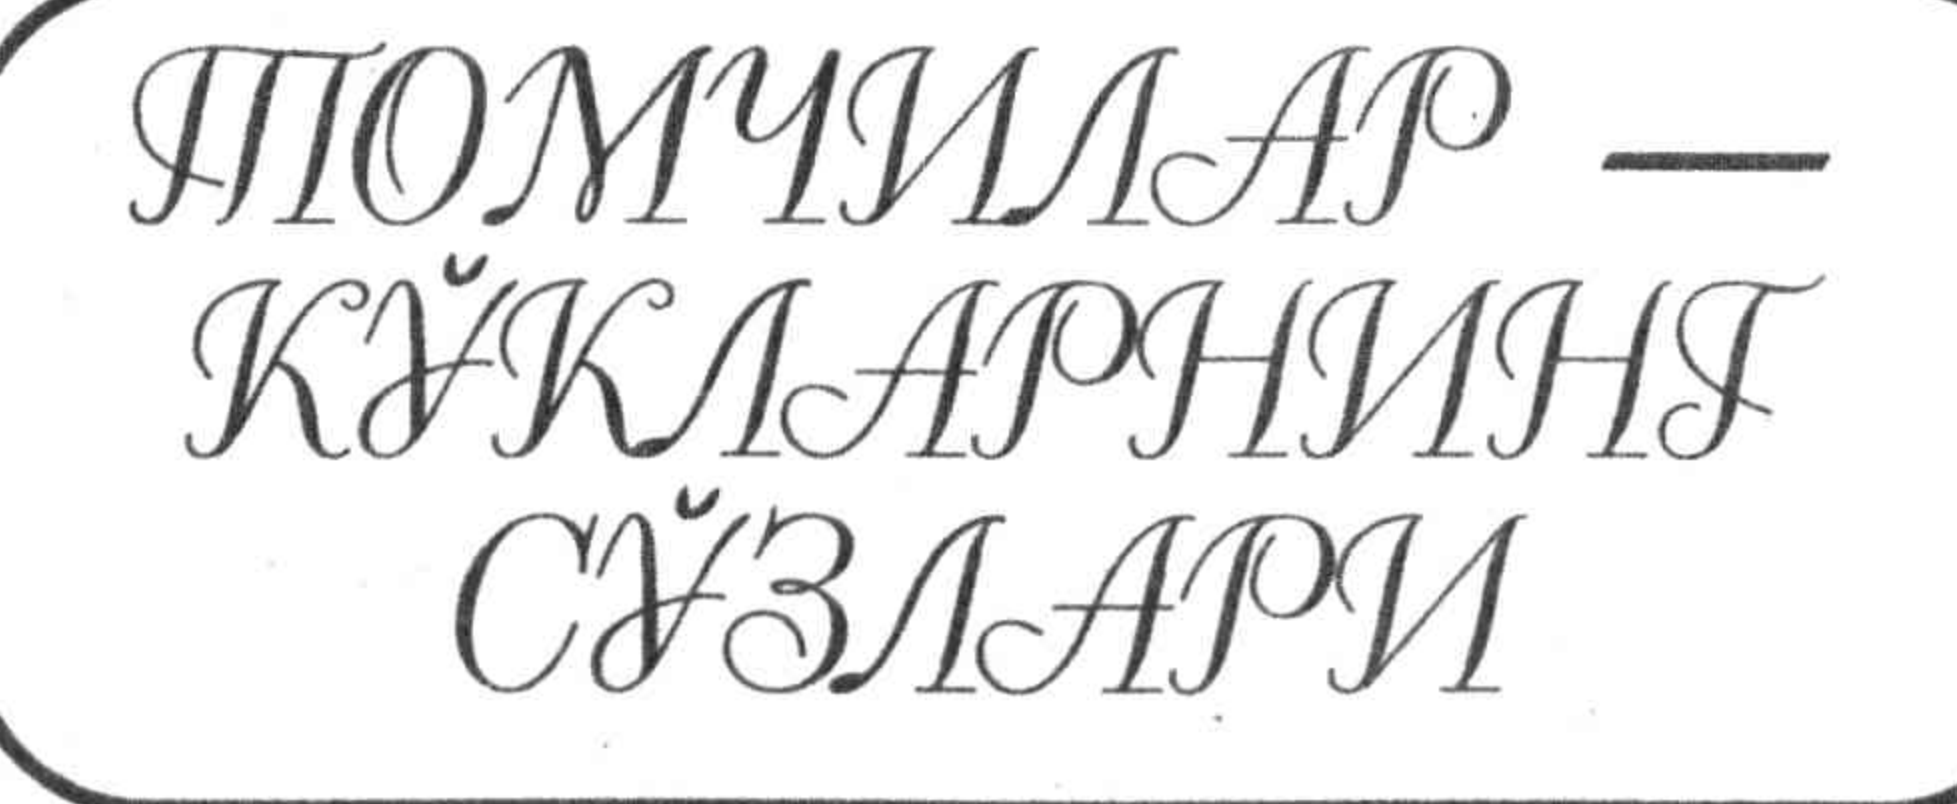 ТОМЧИЛАР —
КЎКЛАРНИНГ
СЎЗЛАРИ